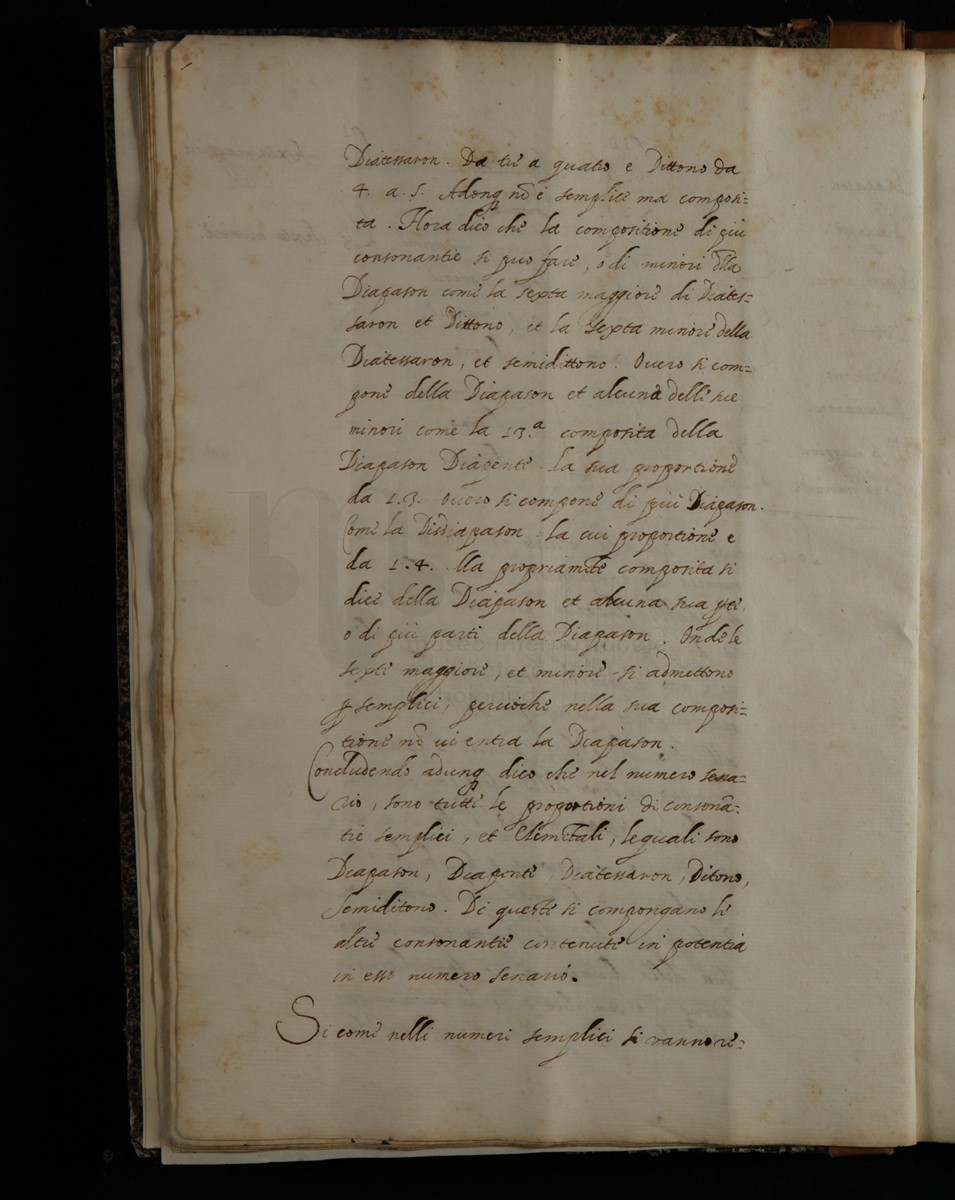 Diatessaron. Da tre a quatro e Dittono da
4. a. 5. Adonq nō é semplice ma composi=
ta. Hora dico che la compositione di piu
consonantie si puo fare, o di minori dlla
Diapason come la sexta maggiore di Diates=
saron et Dittono, et la sexta minore della
Diatessaron, et semidittono. Overo si com=
pone della Diapason et alcuna delle sue
minori come la 13.a composita della
Diapason Diapente. la sua proportione
da 1.3. overo si compone di piu Diapason.
Come la Disdiapason. la cui proportione e
da 1.4. Ma propriamēte composita si
dice della Diapason et alcuna sua pte,
o di piu parti della Diapason. Onde le
sexte maggiore, et minore si admettono
p semplici, percioche nella sua composi=
tione nō vi entra la Diapason.
Concludendo adunq dico che nel numero sena=
rio, sono tutte le proportioni di consonā=
tie semplici, et Elemētali, le quali sono
Diapason, Diapente, Diatessaron, Ditono,
Semiditono. Di queste si compongano le
altre consonantie contenute in potentia
in esso numero senario.
Si come nelli numeri semplici si vanno re=